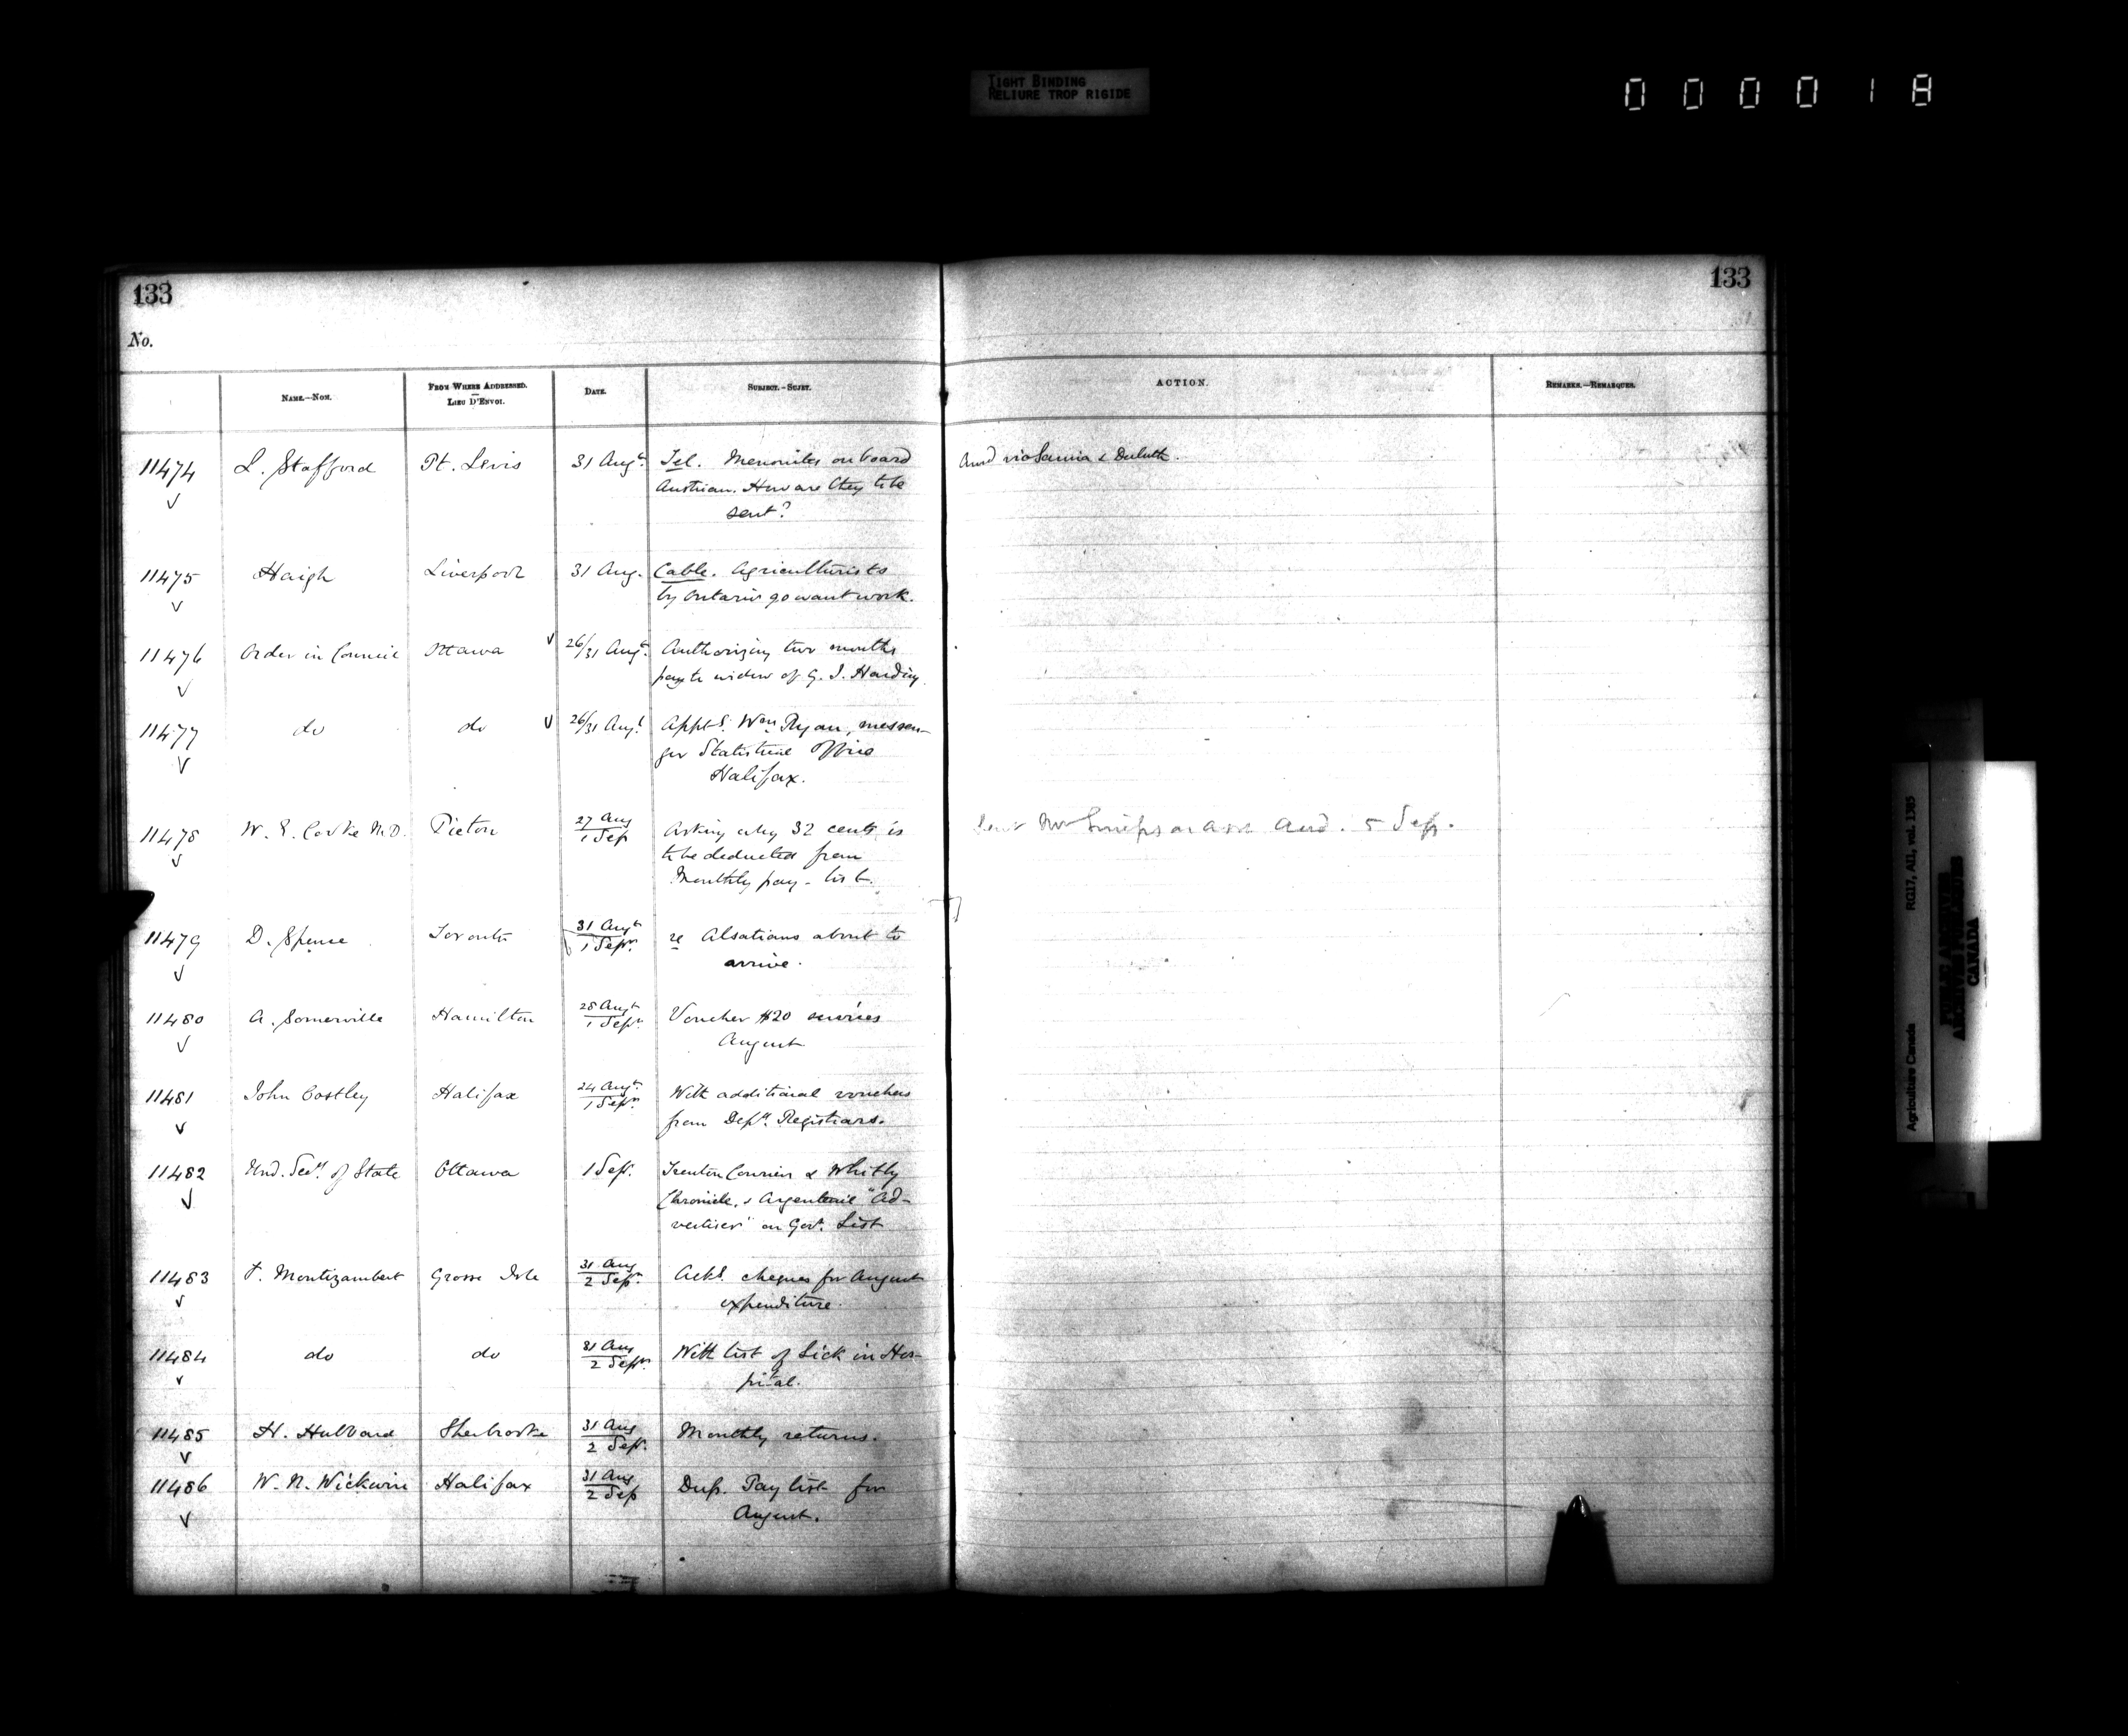 TIGHT BINDING
RELIURE TROP RIGIDE
000018
133
133
No.
NAME.—NOM.
FROM WHERE ADDRESSED.
—
LIEU D'ENVOI.
DATE.
SUBJECT.—SUJET.
ACTION.
REMARKS.—REMARQUES.
11474 L. Stafford Pt. Levis 31 Augt. Tel. Menonites on board
Austrian. How are they to be
sent?
Ansd via Sarnia & Duluth.
11475 Haigh Liverpool 31 Aug. Cable. Agriculturists
by Ontario go want work.
11476 Order in Council Ottawa 26/31 Augt. Authorizing two months
pay to widow of G. I. Harding
11477 do do 26/31 Augt. Appt. Wm. Ryan, messen-
ger Statistical Office
Halifax.
11478 W. E. Cooke M.D. Pictou 27 Aug
1 Sep
Asking why 32 cents is
to be deducted from
Monthly pay-list.
Ansd. 5 Sep.
11479 D. Spence Toronto 31 Augt
1 Sepr.
re Alsatians about to
arrive.
11480 A. Somerville Hamilton 28 Augt
1 Sepr.
Voucher $20 services
August
11481 John Costley Halifax 24 Augt.
1 Sepr.
With additional vouchers
from Depy. Registrars.
11482 Und. Secy. of State Ottawa 1 Sep. Trenton Courier & Whitby
Chronicle, & Argenteuil "Ad-
vertiser" on Govt. List
11483 F. Montizambert Grosse Isle 31 Aug
2 Sepr.
Ackg. cheques for August
expenditure.
11484 do do 31 Aug
2 Sepr.
With list of Sick in Hos-
pital.
11485 H. Hubbard Sherbrooke 31 Aug
2 Sepr.
Monthly returns.
11486 W. N. Wickwire Halifax 31 Aug
2 Sep
Dup. Pay list for
August.
Agriculture Canada RG17, AII, vol. 1385
PUBLIC ARCHIVES
ARCHIVES PUBLIQUES
CANADA